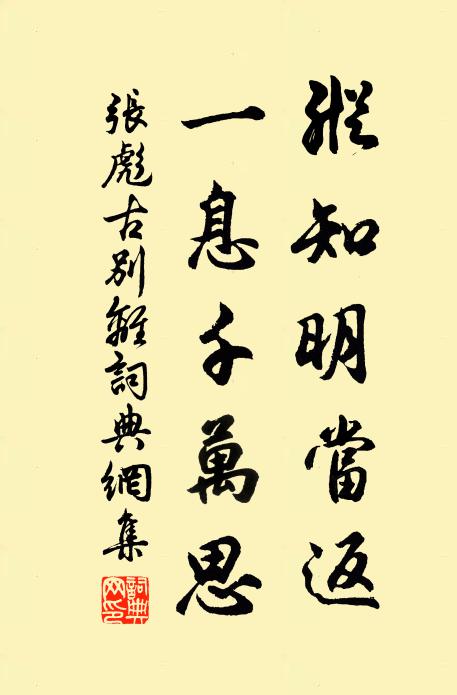 縱知明當返
一息千萬思
張彪古別離詞典網集
詞典
网印